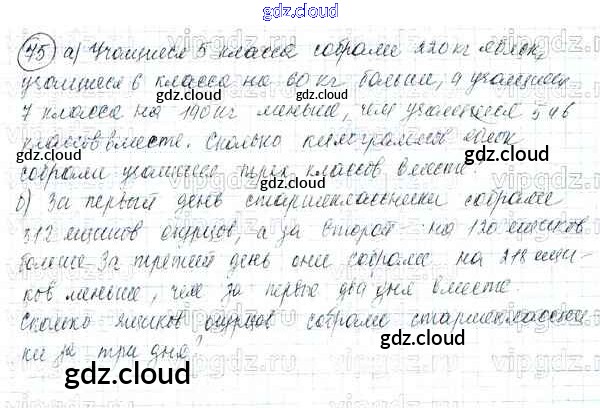 gdz.cloud
75 а) Учащиеся 5 класса собрали 220 кг яблок,
учащиеся 6 класса на 60 кг больше, а учащиеся
7 класса на 190 кг меньше, чем учащиеся 5 и 6
классов вместе. Сколько килограммов яблок
собрали учащиеся трех классов вместе?
б) За первый день старшеклассники собрали
312 ящиков огурцов, а за второй - на 120 ящиков
больше. За третий день они собрали на 218 ящи-
ков меньше, чем за первые два дня вместе.
Сколько ящиков огурцов собрали старшеклассни
ки за три дня?
gdz.cloud